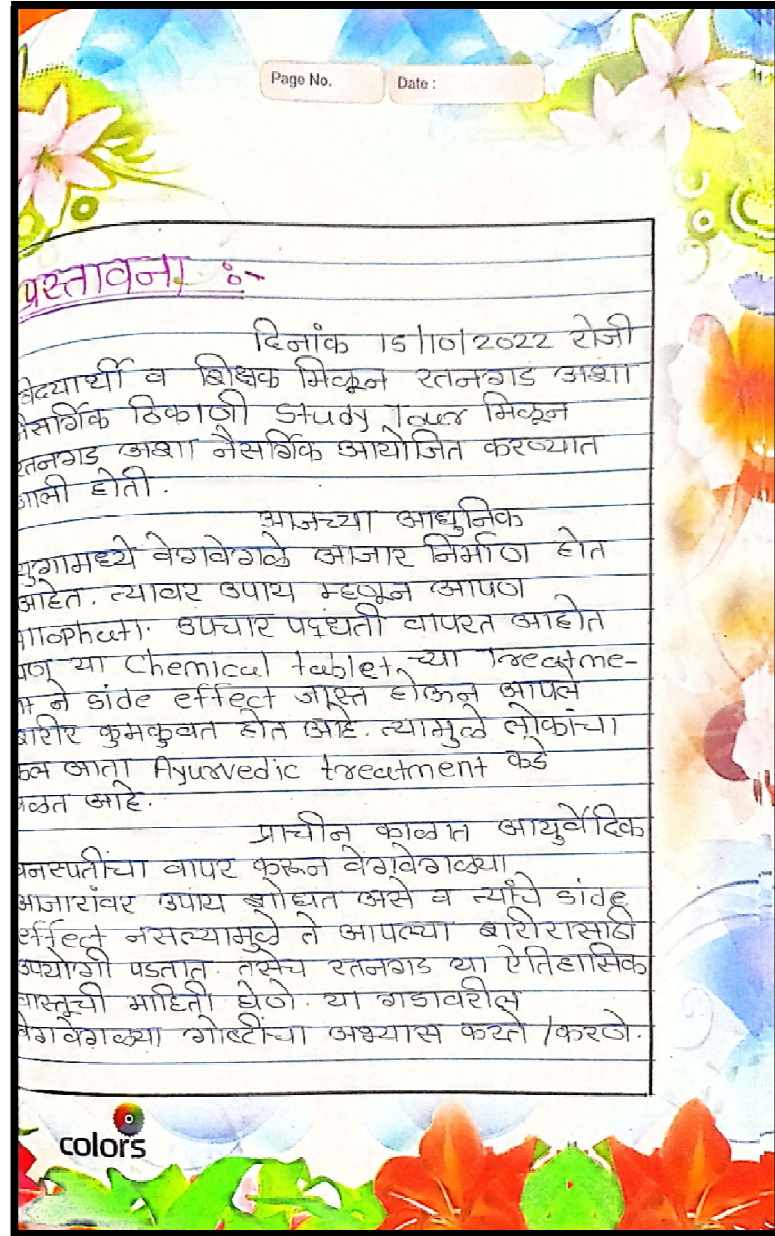 Page No.
Date :
प्रस्तावना :-
दिनांक 15/10/2022 रोजी
विद्यार्थी व शिक्षक मिळून रतनगड अशा
नैसर्गिक ठिकाणी Study Tour मिळून
रतनगड अशा नैसर्गिक आयोजित करण्यात
आली होती.
आजच्या आधुनिक
युगामध्ये वेगवेगळे आजार निर्माण होत
आहेत. त्यावर उपाय म्हणून आपण
उपचार पद्धती वापरत आहोत
पण या Chemical tablet च्या Treatme-
nt ने side effect जास्त होऊन आपले
शरीर कुमकुवत होत आहे. त्यामुळे लोकांचा
कल आता Ayurvedic treatment कडे
वळत आहे.
प्राचीन काळात आयुर्वेदिक
वनस्पतींचा वापर करून वेगवेगळ्या
आजारांवर उपाय शोधत असे व त्यांचे side
effect नसल्यामुळे ते आपल्या शरीरासाठी
उपयोगी पडतात. तसेच रतनगड या ऐतिहासिक
वास्तूची माहिती घेणे. या गडावरील
वेगवेगळ्या गोष्टींचा अभ्यास करते /करणे.
colors